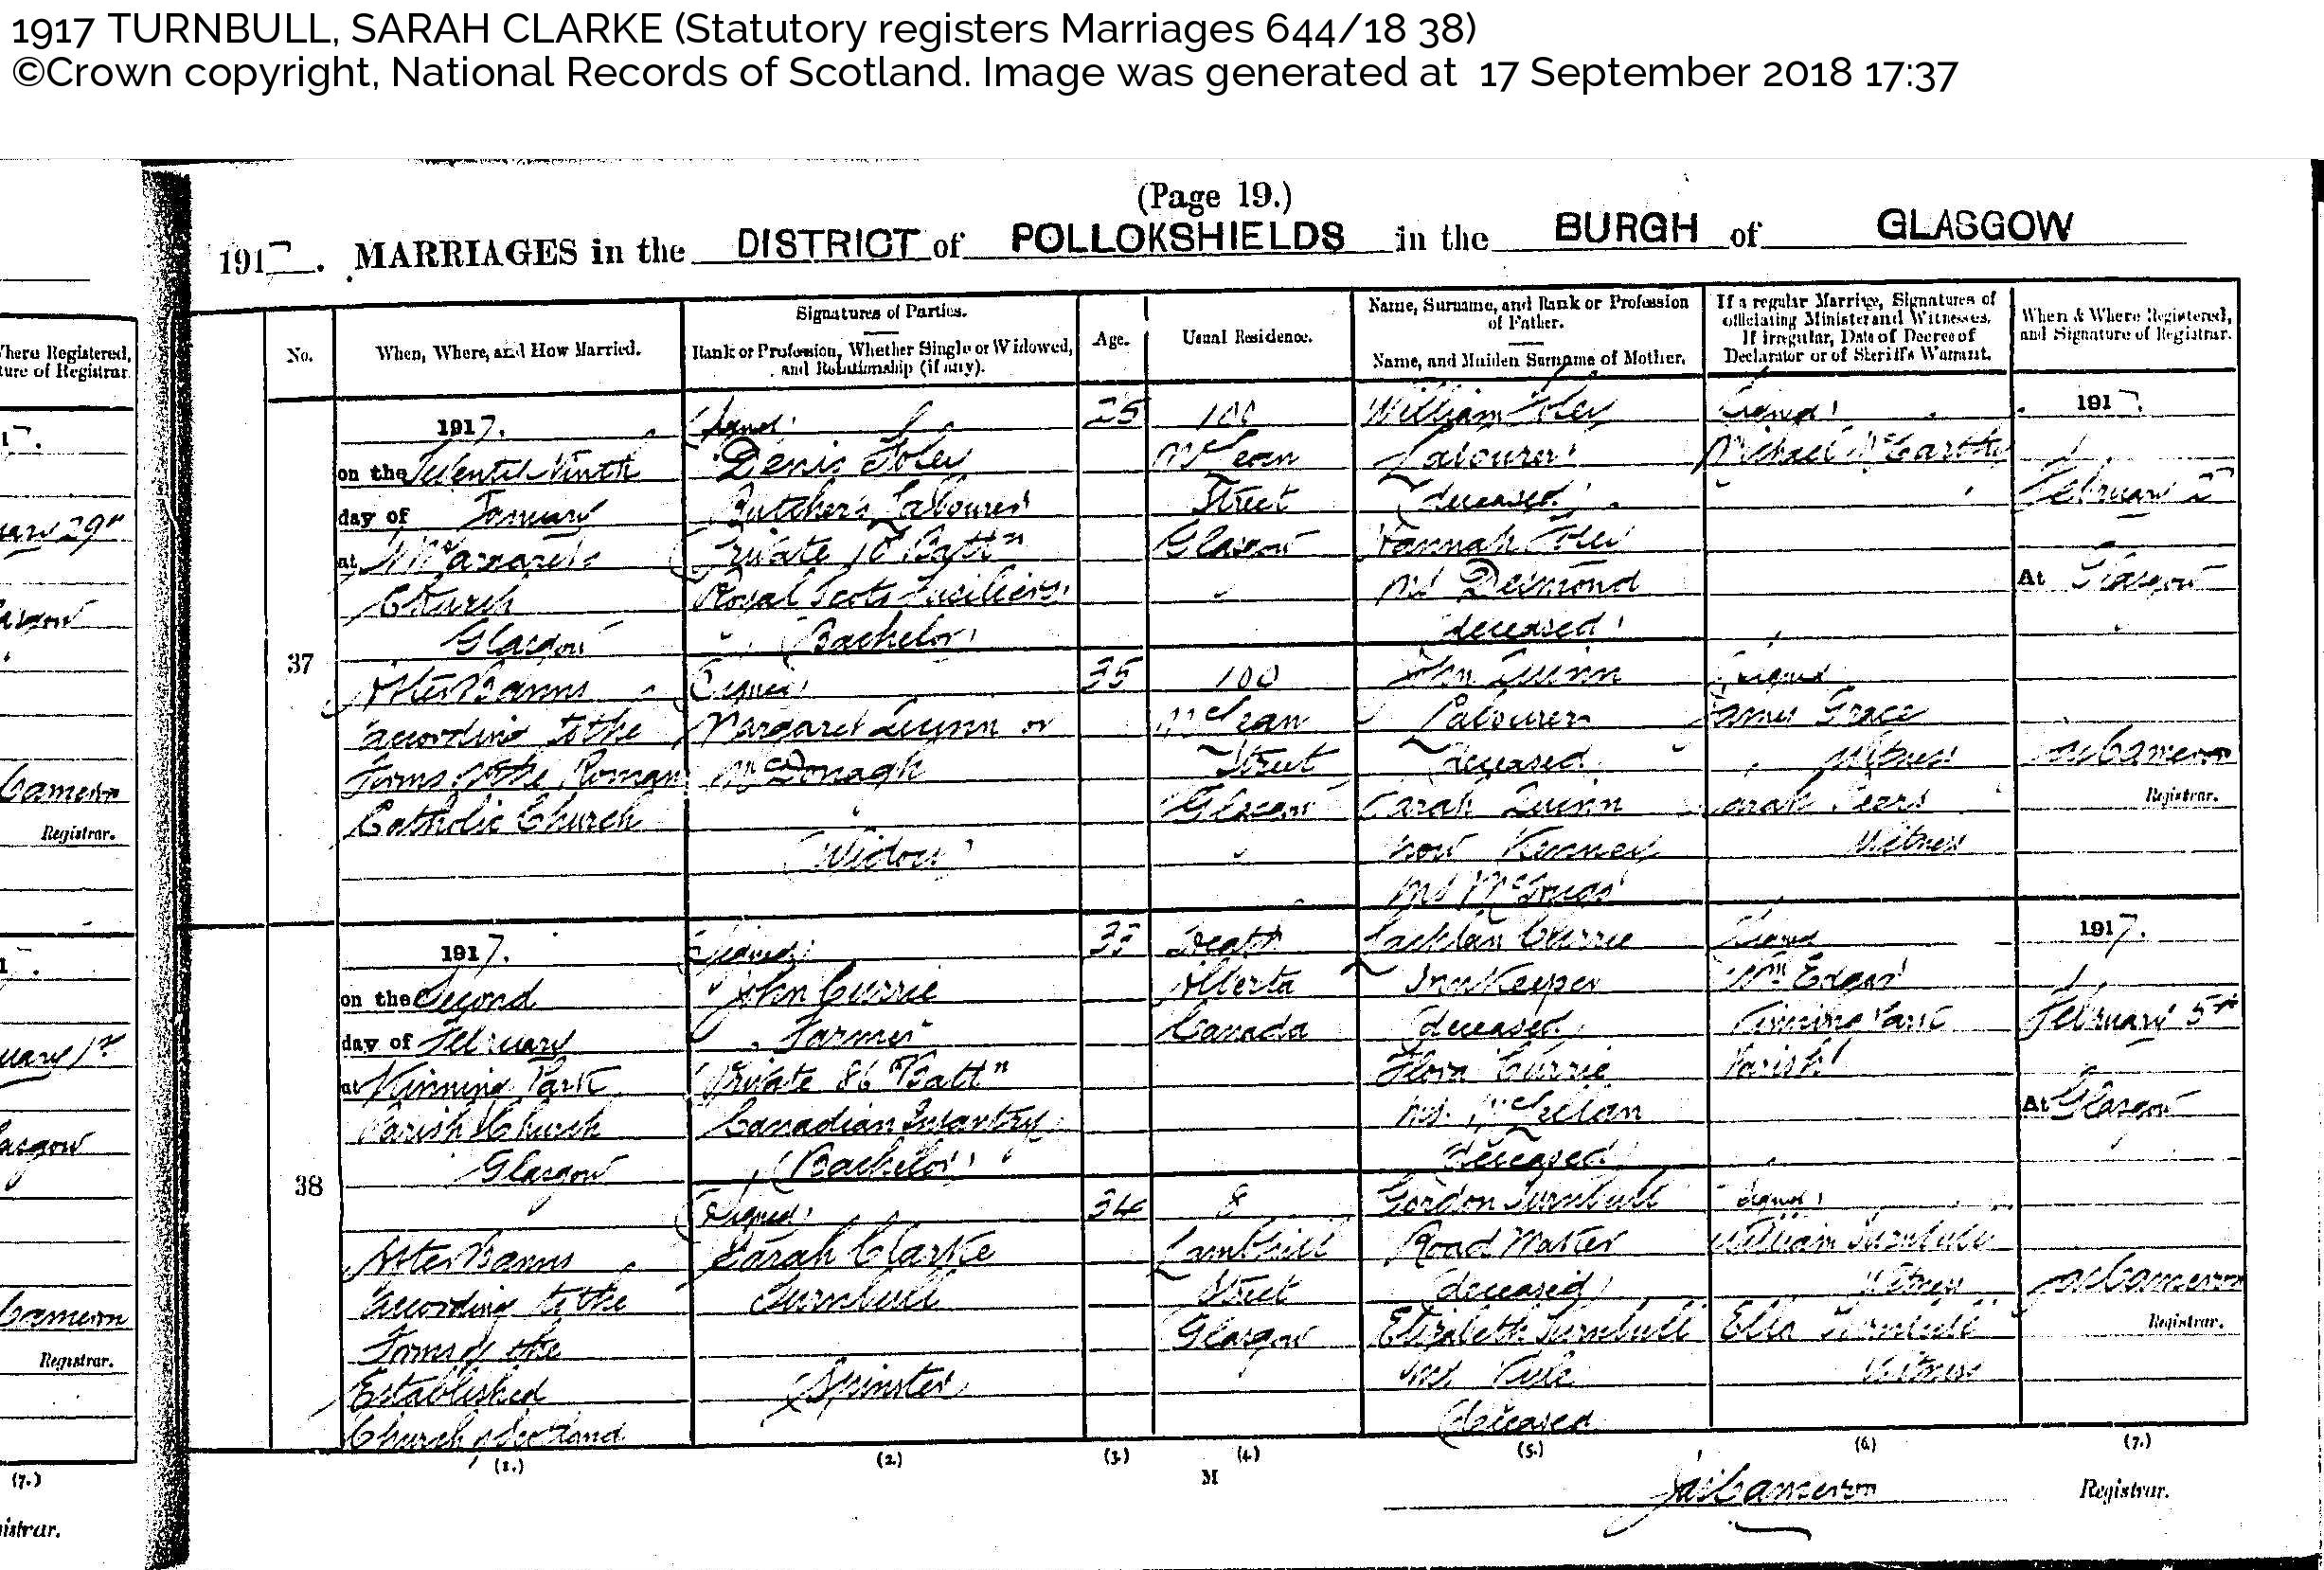 1917 TURNBULL, SARAH CLARKE (Statutory registers Marriages 644/18 38)
©Crown copyright, National Records of Scotland. Image was generated at 17 September 2018 17:37
(Page 19.)
1917. MARRIAGES in the DISTRICT of POLLOKSHIELDS in the BURGH of GLASGOW
No.
When, Where, and How Married.
Signatures of Parties.
Rank or Profession, Whether Single or Widowed,
and Relationship (if any).
Age.
Usual Residence.
Name, Surname, and Rank or Profession
of Father.
Name, and Maiden Surname of Mother.
If a regular Marriage, Signatures of
officiating Minister and Witnesses.
If irregular, Date of Decree of
Declarator or of Sheriff's Warrant.
When & Where Registered,
and Signature of Registrar.
37
1917.
on the Ninth
day of January
at St Margaret's
Church
Glasgow
After Banns
according to the
Forms of the Roman
Catholic Church
(Signed)
Denis Foley
Butcher's Labourer
Private Battn
Royal Scots Fusiliers
(Bachelor)
(Signed)
Margaret Quinn or
McDonagh
(Widow)
25
35
100
McLean
Street
Glasgow
100
McLean
Street
Glasgow
William Foley
Labourer
(deceased)
Hannah Foley
M.S. Desmond
deceased
John Quinn
Labourer
(deceased)
Sarah Quinn
now Kenney
M.S.
(Signed)
Michael McCarthy
(Signed)
James Grace
Witness
Sarah
Witness
1917.
February 2d
At Glasgow
Jas Cameron
Registrar.
38
1917.
on the Second
day of February
at Kinning Park
Parish Church
Glasgow
After Banns
according to the
Forms of the
Established
Church of Scotland
(Signed)
John Currie
Farmer
(Private 86th Battn
Canadian Infantry)
(Bachelor)
(Signed)
Sarah Clarke
Turnbull
(Spinster)
33
34
Alberta
Canada
8
Lambhill
Street
Glasgow
Lachlan Currie
Innkeeper
(deceased)
Flora Currie
M.S. McLellan
deceased
Gordon Turnbull
Road Master
(deceased)
Elizabeth Turnbull
M.S.
(deceased)
(Signed)
Wm Edgar
Kinning Park
Parish
(Signed)
William Turnbull
Witness
Ella Turnbull
Witness
1917.
February 5th
At Glasgow
Jas Cameron
Registrar.
(1.) (2.) (3.) (4.) (5.) (6.) (7.)
M
Jas Cameron Registrar.